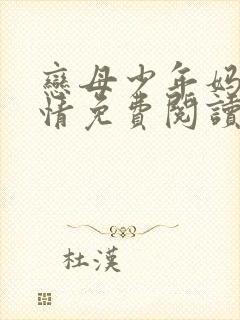 戀母少年妈
情免費閱讀
杜漢